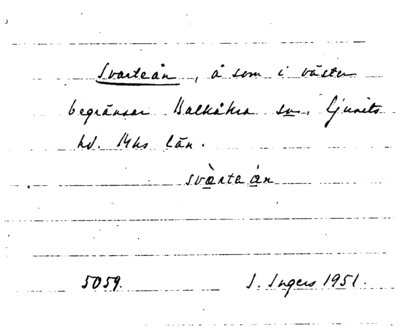 Svarteån, å som i väster
begränsar Balkåkra sn. Ljunits
hd. Mhs län.
svàrta ån
5059. I. Ingers 1951.